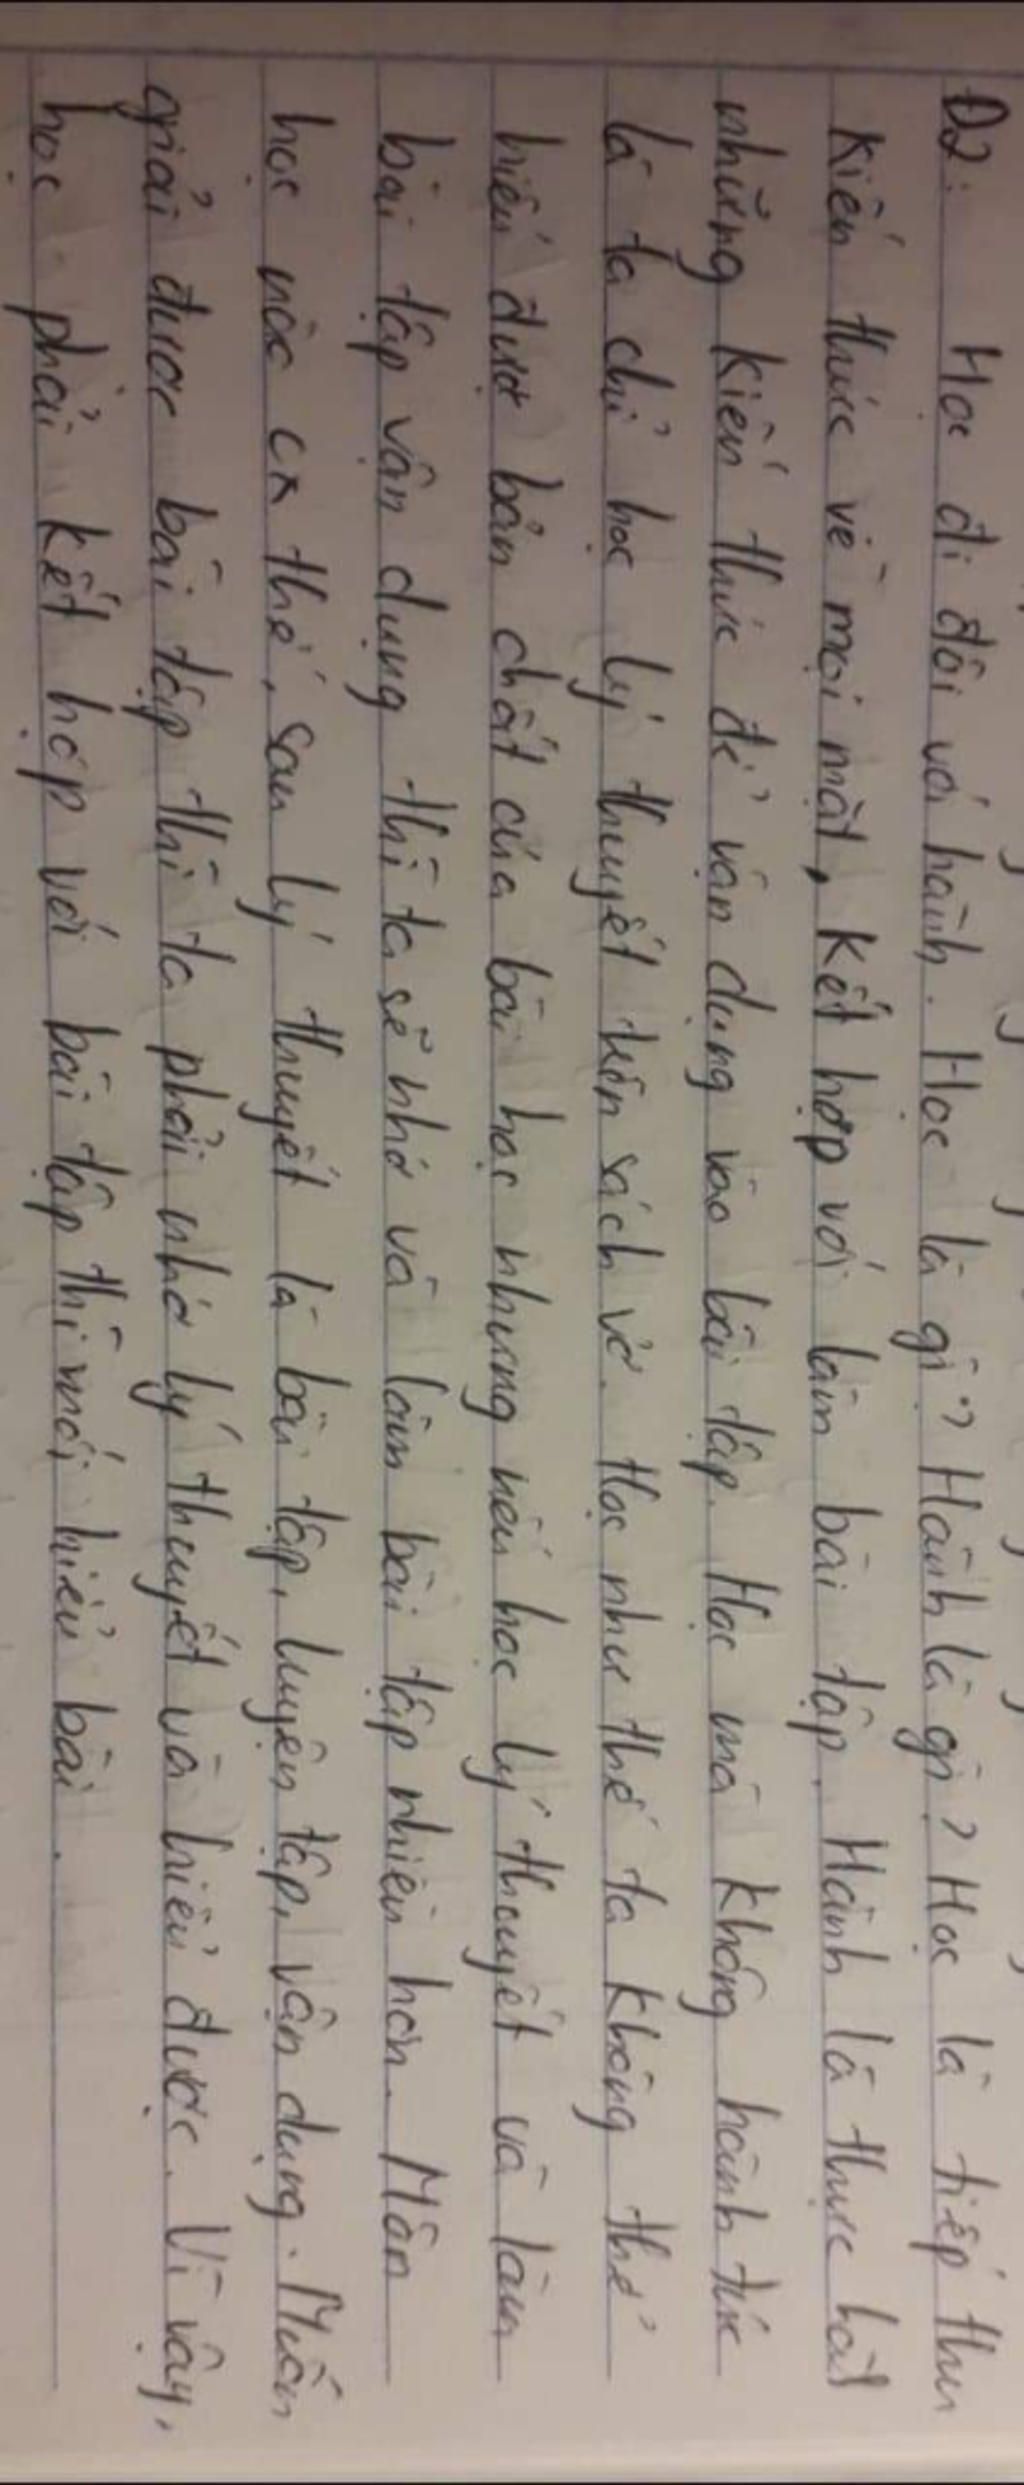 Đ2: Học đi đôi với hành. Học là gì? Hành là gì? Học là tiếp thu
kiến thức về mọi mặt, kết hợp với làm bài tập. Hành là thực hành
những kiến thức để vận dụng vào bài tập. Học mà không hành tức
là ta chỉ học lý thuyết trên sách vở. Học như thế ta không thể
hiểu được bản chất của bài học nhưng nếu học lý thuyết và làm
bài tập vận dụng thì ta sẽ nhớ và làm bài tập nhiều hơn. Môn
học nào cx thế, sau lý thuyết là bài tập, luyện tập, vận dụng. Muốn
giải được bài tập thì ta phải nhớ lý thuyết và hiểu được. Vì vậy,
học phải kết hợp với bài tập thì mới hiểu bài.